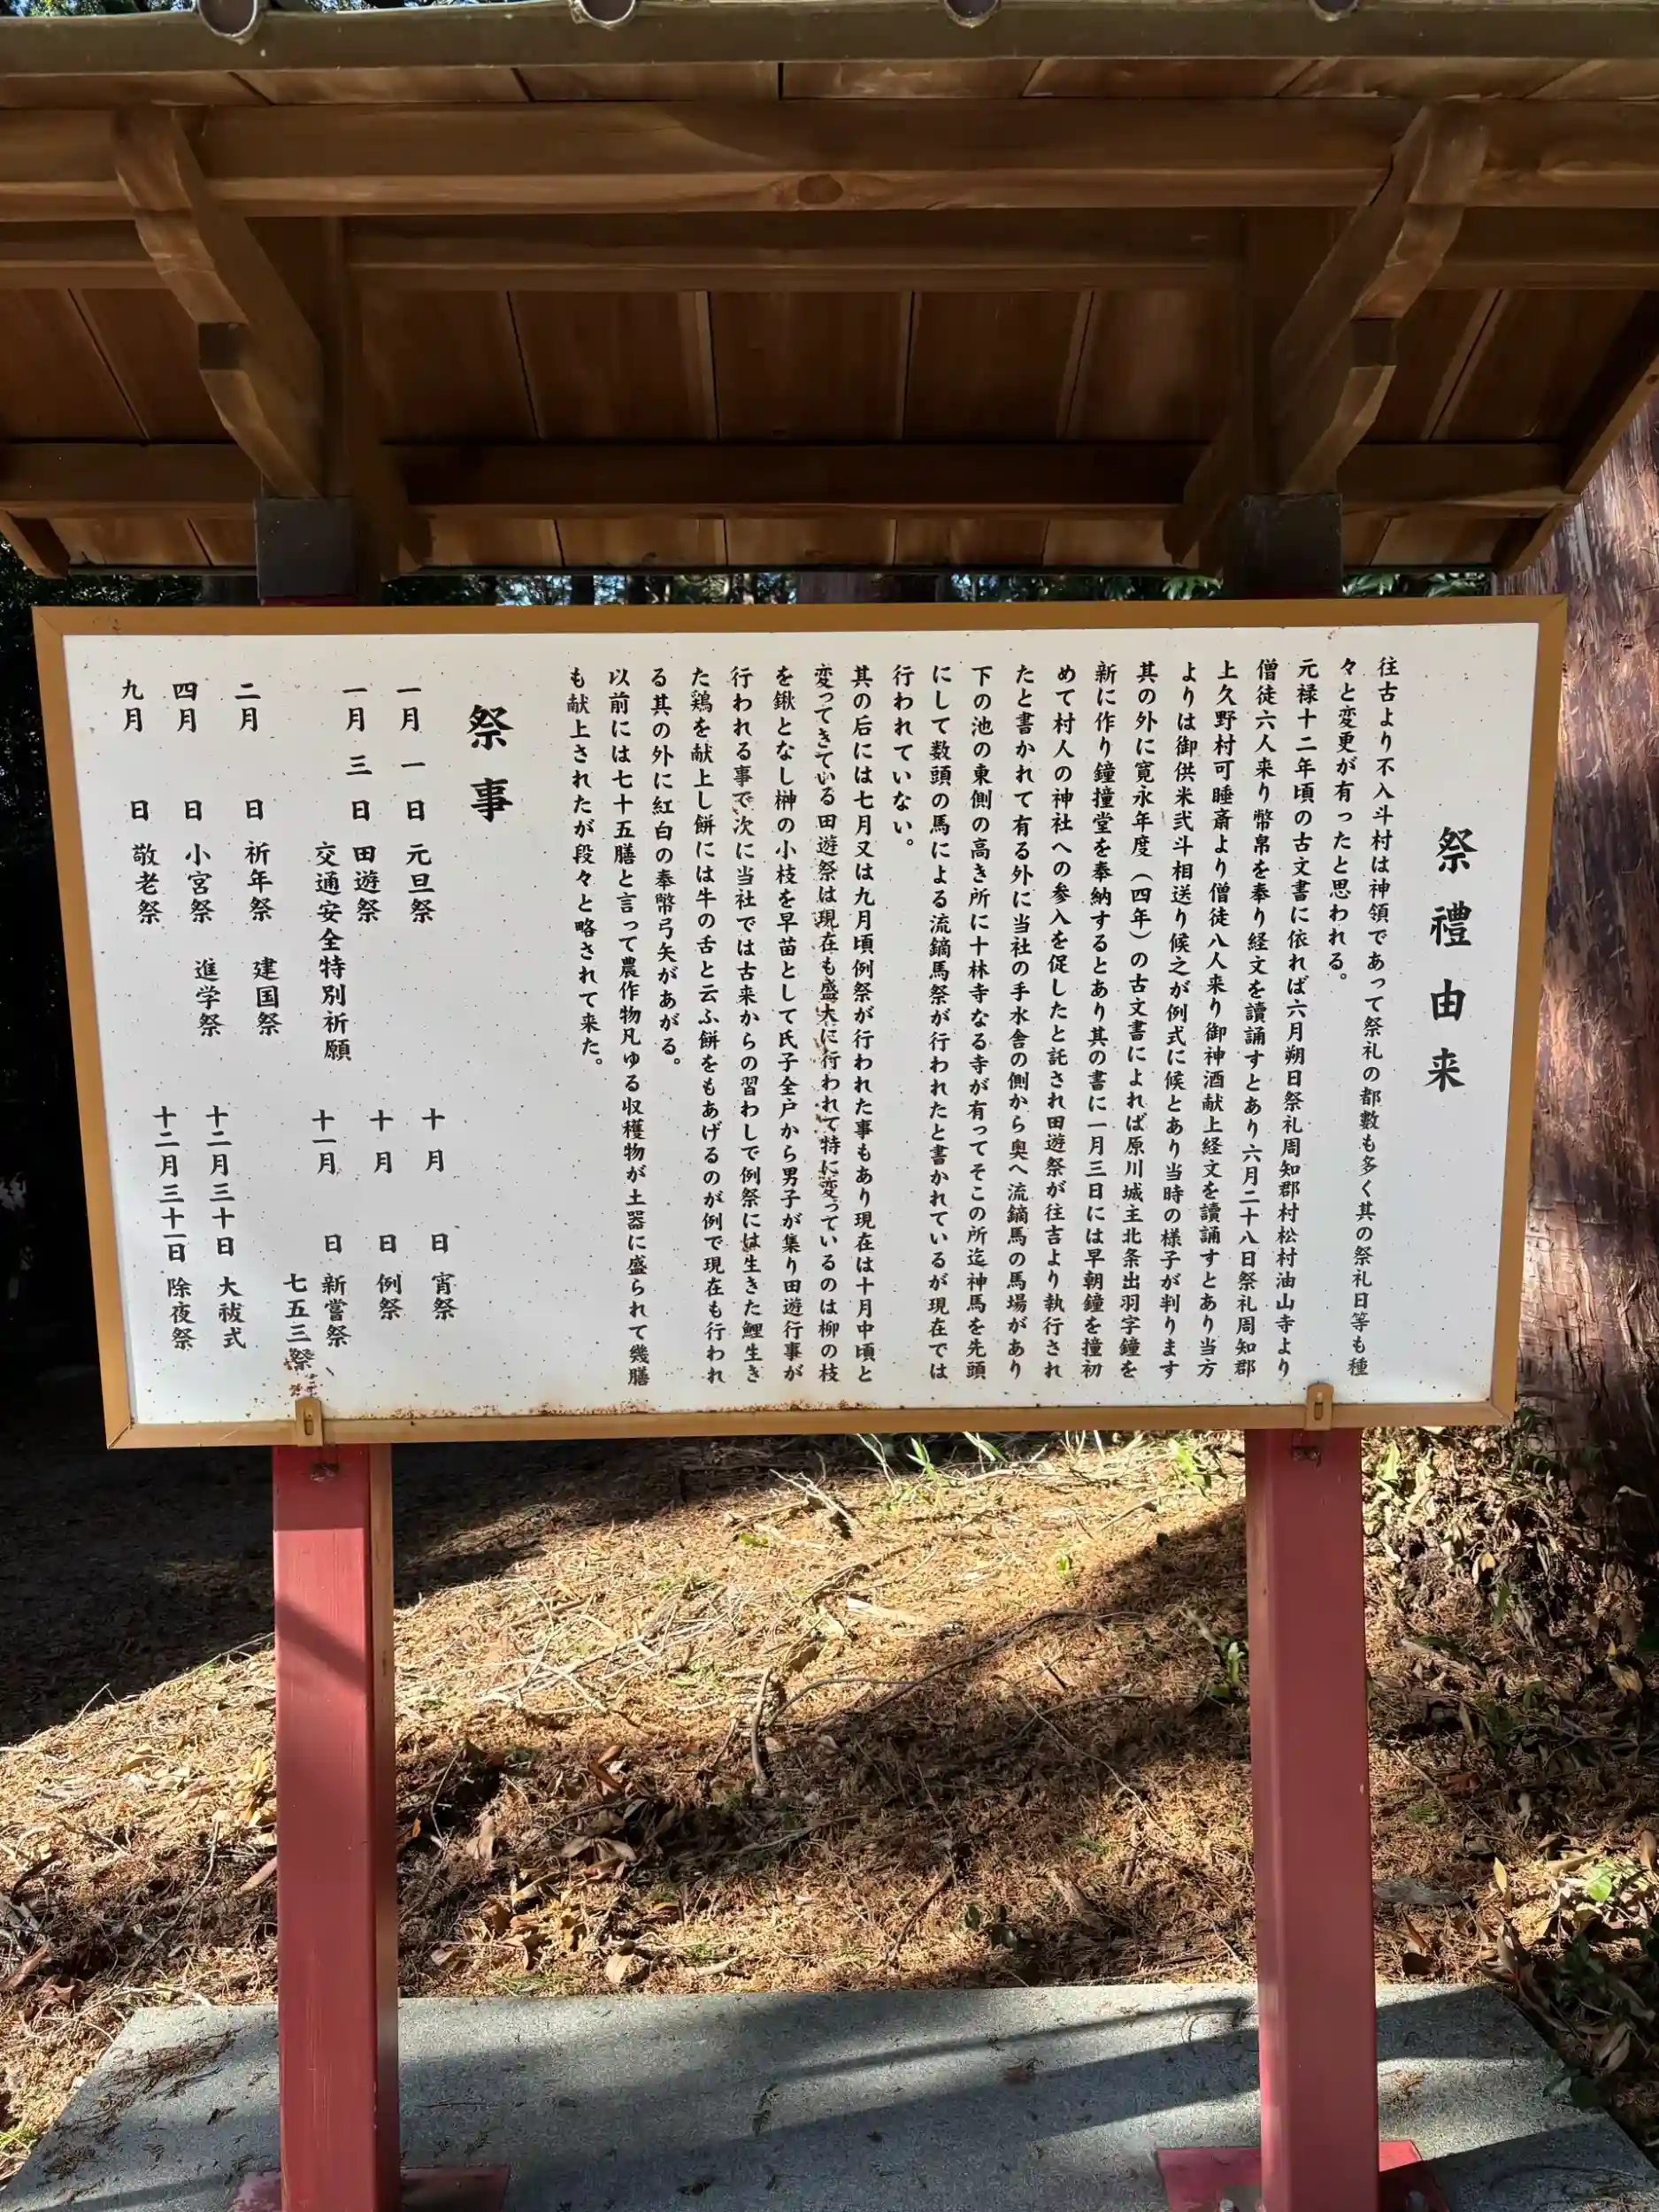 祭禮由来
往古より不入斗村は神領であって祭礼の都數も多く其の祭礼日等も種
々と変更が有ったと思われる。
元禄十二年頃の古文書に依れば六月朔日祭礼周知郡村松村油山寺より
僧徒六人来り幣帛を奉り経文を讀誦すとあり六月二十八日祭礼周知郡
上久野村可睡斎より僧徒八人来り御神酒献上経文を讀誦すとあり当方
よりは御供米弐斗相送り候之が例式に候とあり当時の様子が判ります
其の外に寛永年度（四年）の古文書によれば原川城主北条出羽字鐘を
新に作り鐘撞堂を奉納するとあり其の書に一月三日には早朝鐘を撞初
めて村人の神社への参入を促したと託され田遊祭が往吉より執行され
たと書かれて有る外に当社の手水舎の側から奥へ流鏑馬の馬場があり
下の池の東側の高き所に十林寺なる寺が有ってそこの所迄神馬を先頭
にして数頭の馬による流鏑馬祭が行われたと書かれているが現在では
行われていない。
其の后には七月又は九月頃例祭が行われた事もあり現在は十月中頃と
変ってきている田遊祭は現在も盛大に行われて特に変っているのは柳の枝
を鍬となし榊の小枝を早苗として氏子全戸から男子が集り田遊行事が
行われる事で次に当社では古来からの習わしで例祭には生きた鯉生き
た鶏を献上し餅には牛の舌と云ふ餅をもあげるのが例で現在も行われ
る其の外に紅白の奉幣弓矢があがる。
以前には七十五膳と言って農作物凡ゆる収穫物が土器に盛られて幾膳
も献上されたが段々と略されて来た。
祭事
一月一日 元旦祭
一月三日 田遊祭
交通安全特別祈願
二月 日 祈年祭 建国祭
四月 日 小宮祭 進学祭
九月 日 敬老祭
十月 日 宵祭
十月 日 例祭
十一月 日 新嘗祭
七五三祭
十二月三十日 大祓式
十二月三十一日 除夜祭